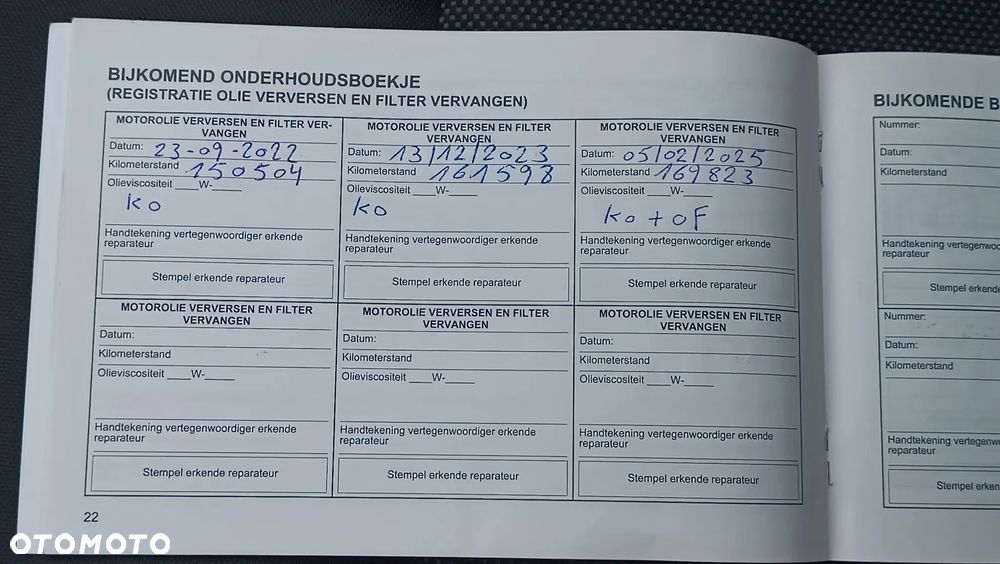 BIJKOMEND ONDERHOUDSBOEKJE
(REGISTRATIE OLIE VERVERSEN EN FILTER VERVANGEN)
MOTOROLIE VERVERSEN EN FILTER VER-
VANGEN
Datum: 23-09-2022
Kilometerstand 150504
Olieviscositeit ____W-_____
KO
Handtekening vertegenwoordiger erkende
reparateur
Stempel erkende reparateur
MOTOROLIE VERVERSEN EN FILTER
VERVANGEN
Datum: 13/12/2023
Kilometerstand 161593
Olieviscositeit ____W-_____
KO
Handtekening vertegenwoordiger erkende
reparateur
Stempel erkende reparateur
MOTOROLIE VERVERSEN EN FILTER
VERVANGEN
Datum: 05/02/2025
Kilometerstand 169823
Olieviscositeit ____W-_____
KO + OF
Handtekening vertegenwoordiger erkende
reparateur
Stempel erkende reparateur
MOTOROLIE VERVERSEN EN FILTER
VERVANGEN
Datum:
Kilometerstand
Olieviscositeit ____W-_____
Handtekening vertegenwoordiger erkende
reparateur
Stempel erkende reparateur
MOTOROLIE VERVERSEN EN FILTER
VERVANGEN
Datum:
Kilometerstand
Olieviscositeit ____W-_____
Handtekening vertegenwoordiger erkende
reparateur
Stempel erkende reparateur
MOTOROLIE VERVERSEN EN FILTER
VERVANGEN
Datum:
Kilometerstand
Olieviscositeit ____W-_____
Handtekening vertegenwoordiger erkende
reparateur
Stempel erkende reparateur
22
BIJKOMENDE B
Nummer:
Datum:
Kilometerstand
Handtekening
reparateur
Stempel
Nummer:
Datum:
Kilometerstand
Handtekening
reparateur
Stempel
OTOMOTO